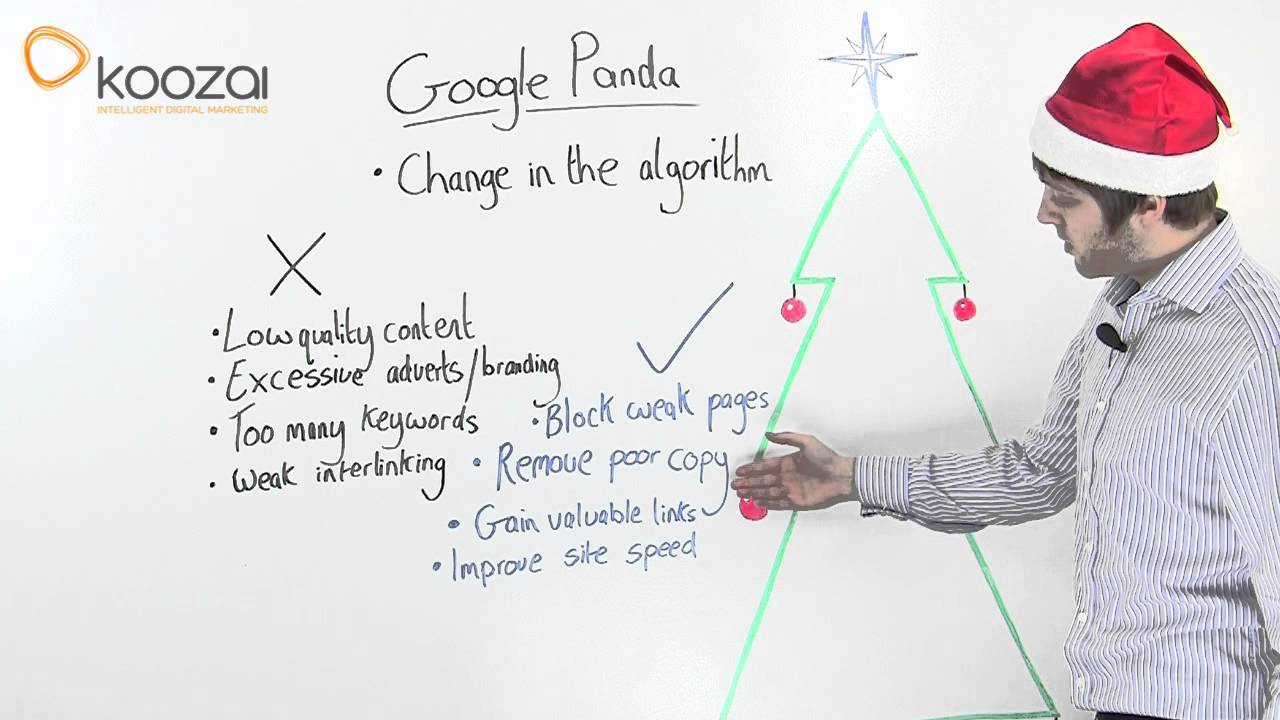 koozai
INTELLIGENT DIGITAL MARKETING
Google Panda
• Change in the algorithm
• Low quality content
• Excessive adverts/branding
• Too many keywords
• Weak interlinking
• Block weak pages
• Remove poor copy
• Gain valuable links
• Improve site speed